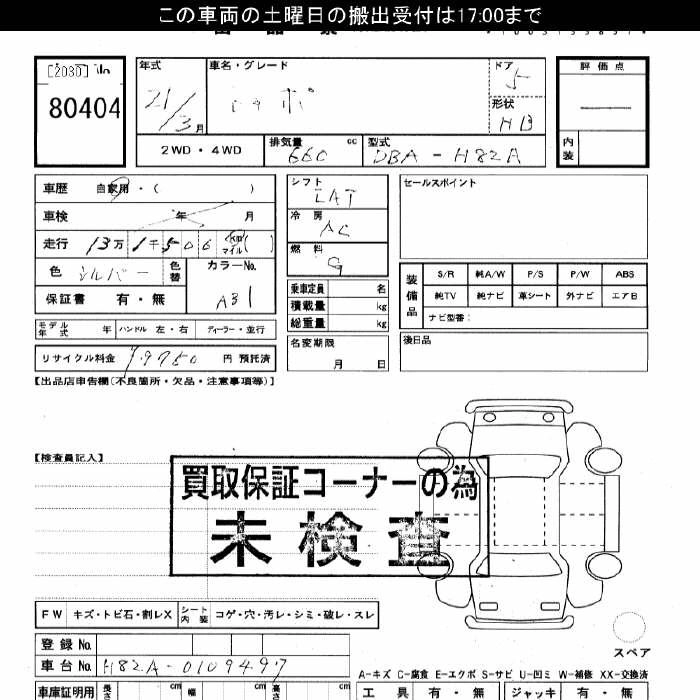 この車両の土曜日の搬出受付は17:00まで
[2030] No
80404
年式 車名・グレード ドア 5
21/3月 トッポ 形状 HB
2WD・4WD 排気量 660 cc 型式 DBA-H82A
評価点
内装
車歴 自家用・( )
車検 年 月
走行 13万 1千 506 km マイル( )
色 シルバー 色替 カラーNo. A31
保証書 有・無
モデル年式 年 ハンドル 左・右 ディーラー・並行
リサイクル料金 円 預託済
シフト
冷房 AC
燃料 G
乗車定員 名
積載量 kg
総重量 kg
名変期限
月 日
セールスポイント
装備品 S/R 純A/W P/S P/W ABS
純TV 純ナビ 革シート 外ナビ エアB
ナビ型番:
後日品
【出品店申告欄(不良箇所・欠品・注意事項等)】
【検査員記入】
買取保証コーナーの為
未検査
FW キズ・トビ石・割レX シート内装 コゲ・穴・汚レ・シミ・破レ・スレ
スペア
登録 No.
車台 No. H82A-0109497
A-キズ C-腐食 E-エクボ S-サビ U-凹ミ W-補修 XX-交換済
車庫証明用 長さ cm 幅 cm 高さ cm
工具 有・無 ジャッキ 有・無